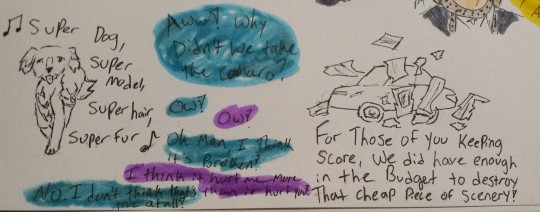 ♫ Super
Dog,
Super
model,
Super hair,
Super Fur ♪
Aww? Why
Didn't we take
the Camaro?
Ow?
Ow?
Oh Man, I think
it's Broken?
I think it hurt me more
than it hurt you?
No. I don't think that's
true at all?
For Those of you Keeping
Score, We did have enough
in the Budget to destroy
That cheap Piece of Scenery?